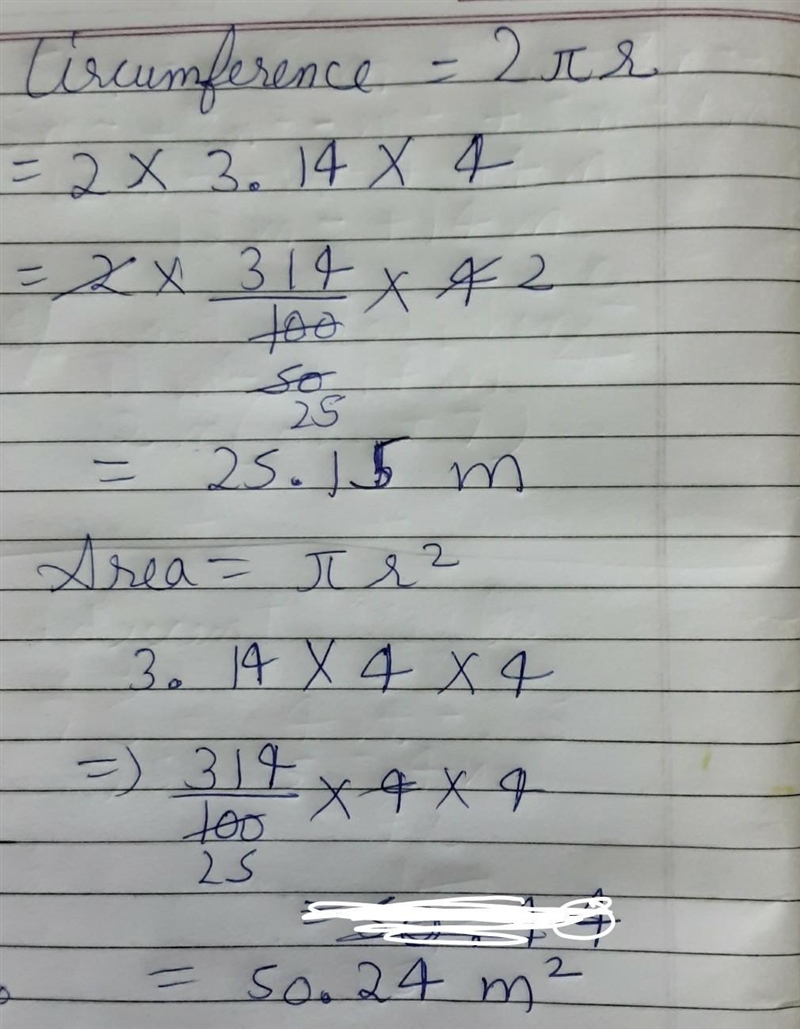 Circumference = 2πr
= 2 × 3.14 × 4
= 2 × 314/100 × 4 2
50
25
= 25.15 m
Area = πr²
3.14 × 4 × 4
=) 314/100 × 4 × 4
25
= 50.24 m²